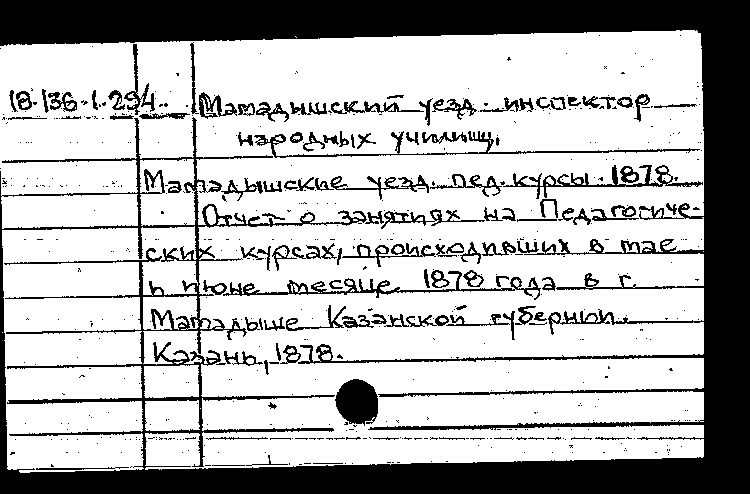 18.136.1.294. Мамадышский уезд. инспектор
народных училищ.
Мамадышские уезд. пед. курсы. 1878.
Отчет о занятиях на Педагогиче-
ских курсах, происходивших в мае
и июне месяце 1878 года в г.
Мамадыше Казанской губернии.
Казань, 1878.